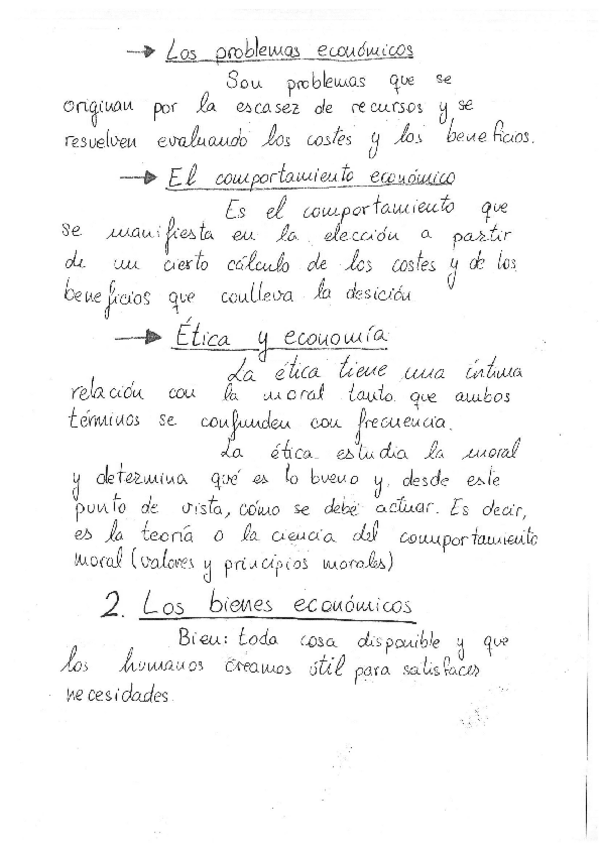 → Los problemas económicos
Son problemas que se
originan por la escasez de recursos y se
resuelven evaluando los costes y los beneficios.
→ El comportamiento económico
Es el comportamiento que
se manifiesta en la elección a partir
de un cierto cálculo de los costes y de los
beneficios que conlleva la desición
→ Ética y economía
La ética tiene una íntima
relación con la moral tanto que ambos
términos se confunden con frecuencia.
La ética estudia la moral
y determina qué es lo bueno y, desde este
punto de vista, cómo se debe actuar. Es decir,
es la teoría o la ciencia del comportamiento
moral (valores y principios morales)
2. Los bienes económicos
Bien: toda cosa disponible y que
los humanos creamos útil para satisfacer
necesidades.